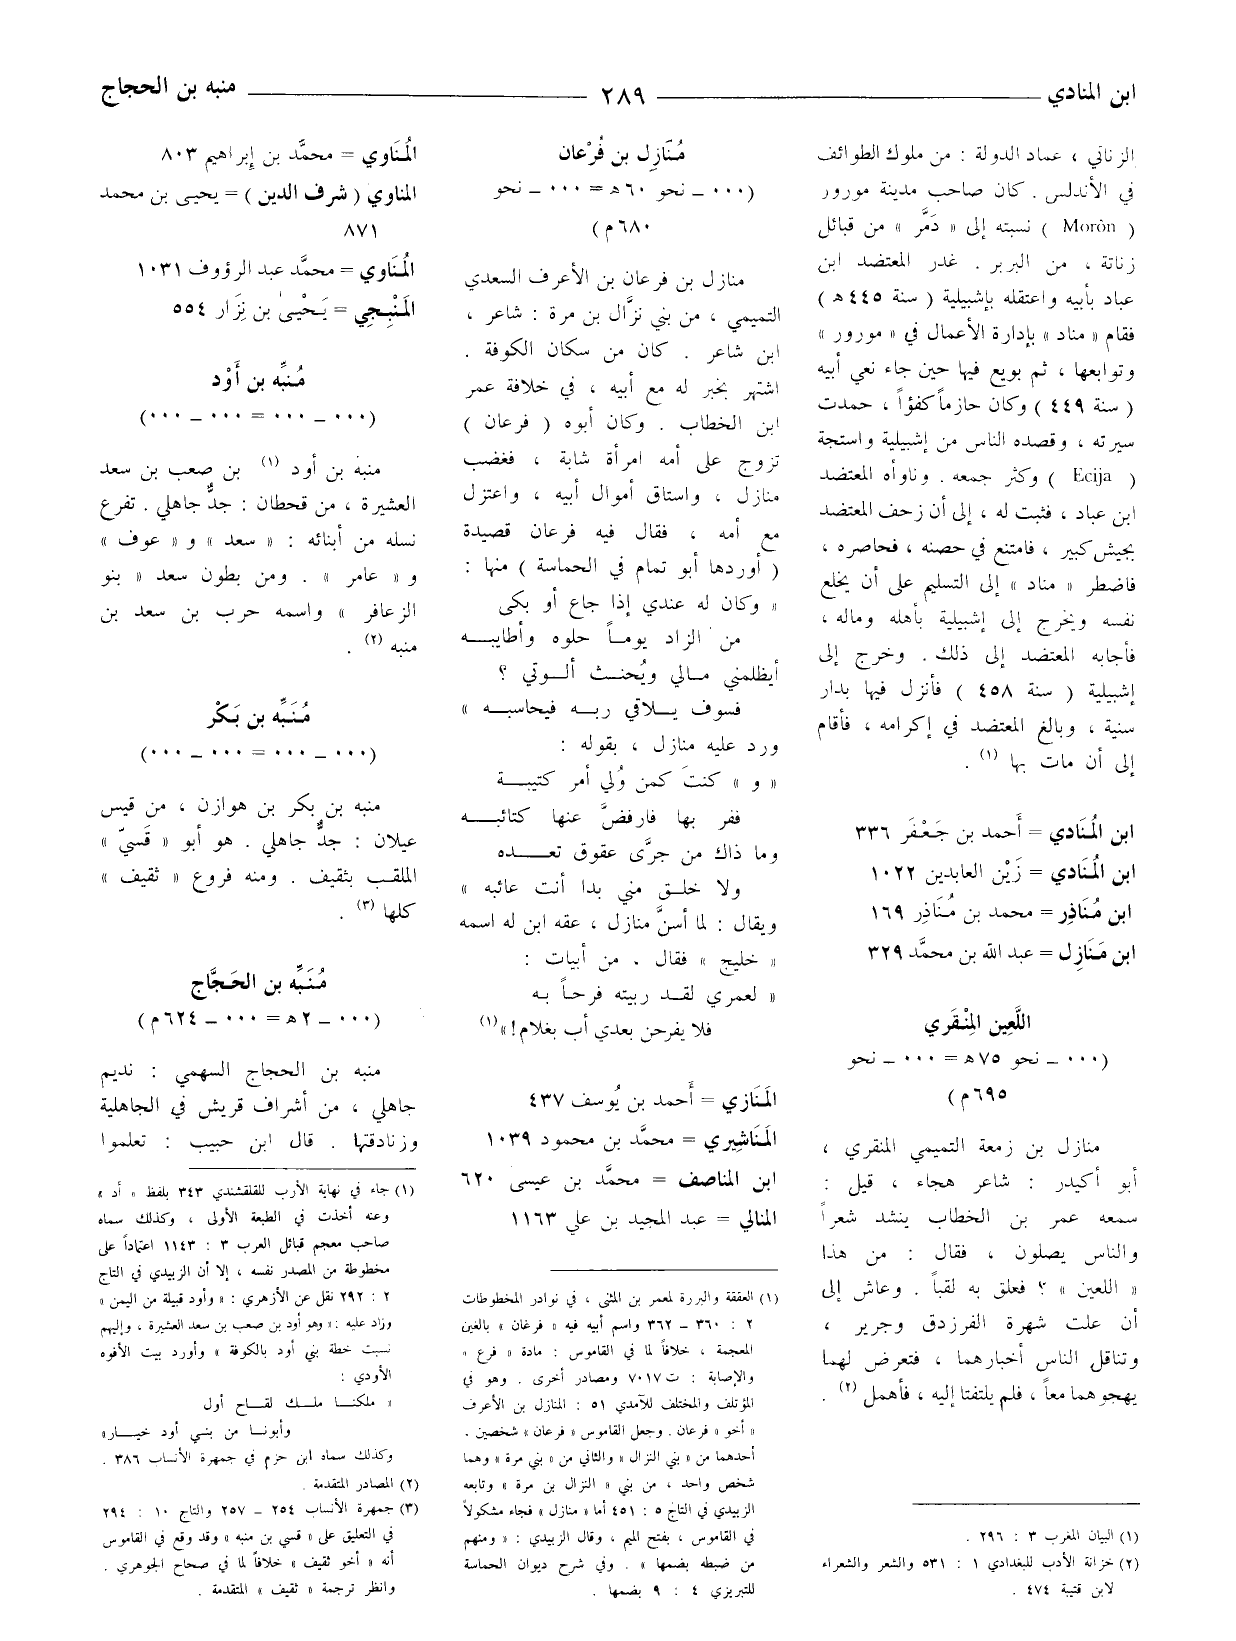 ابن المنادي ــــــ ٢٨٩ ــــــ منبه بن الحجاج
الزناتي ، عماد الدولة : من ملوك الطوائف
في الأندلس . كان صاحب مدينة مورور
( Morôn ) نسبته إلى « دَمَّر » من قبائل
زناتة ، من البربر . غدر المعتضد ابن
عباد بأبيه واعتقله بإشبيلية ( سنة ٤٤٥ هـ )
فقام « مناد » بإدارة الأعمال في « مورور »
وتوابعها ، ثم بويع فيها حين جاء نعي أبيه
( سنة ٤٤٩ ) وكان حازماً كفؤاً ، حمدت
سيرته ، وقصده الناس من إشبيلية واستجة
( Ecija ) وكثر جمعه . وناوأه المعتضد
ابن عباد ، فثبت له ، إلى أن زحف المعتضد
بجيش كبير ، فامتنع في حصنه ، فحاصره ،
فاضطر « مناد » إلى التسليم على أن يخلع
نفسه ويخرج إلى إشبيلية بأهله وماله ،
فأجابه المعتضد إلى ذلك . وخرج إلى
إشبيلية ( سنة ٤٥٨ ) فأنزل فيها بدار
سنية ، وبالغ المعتضد في إكرامه ، فأقام
إلى أن مات بها (١) .
ابن المُنَادي = أَحمد بن جَعْفَر ٣٣٦
ابن المُنَادي = زَيْن العابدين ١٠٢٢
ابن مُنَاذِر = محمد بن مُنَاذِر ١٦٩
ابن مَنَازِل = عبد الله بن محمَّد ٣٢٩
اللَّعِين المِنْقَري
(٠٠٠ ــ نحو ٧٥ هـ = ٠٠٠ ــ نحو
٦٩٥ م)
منازل بن زمعة التميمي المنقري ،
أبو أكيدر : شاعر هجاء ، قيل :
سمعه عمر بن الخطاب ينشد شعراً
والناس يصلون ، فقال : من هذا
« اللعين » ؟ فعلق به لقباً . وعاش إلى
أن علت شهرة الفرزدق وجرير ،
وتناقل الناس أخبارهما ، فتعرض لهما
يهجوهما معاً ، فلم يلتفتا إليه ، فأهمل (٢) .
(١) البيان المغرب ٣ : ٢٩٦ .
(٢) خزانة الأدب للبغدادي ١ : ٥٣١ والشعر والشعراء
لابن قتيبة ٤٧٤ .
مُنَازِل بن فُرْعان
(٠٠٠ ــ نحو ٦٠ هـ = ٠٠٠ ــ نحو
٦٨٠ م)
منازل بن فرعان بن الأعرف السعدي
التميمي ، من بني نزَّال بن مرة : شاعر ،
ابن شاعر . كان من سكان الكوفة .
اشتهر بخبر له مع أبيه ، في خلافة عمر
ابن الخطاب . وكان أبوه ( فرعان )
تزوج على أمه امرأة شابة ، فغضب
منازل ، واستاق أموال أبيه ، واعتزل
مع أمه ، فقال فيه فرعان قصيدة
( أوردها أبو تمام في الحماسة ) منها :
« وكان له عندي إذا جاع أو بكى
من الزاد يومـاً حلوه وأطايبـه
أيظلمني مـالي ويُحنـث ألـوتي ؟
فسوف يـلاقي ربـه فيحاسبـه »
ورد عليه منازل ، بقوله :
« و » كنتَ كمن وُلي أمر كتيبـة
ففر بها فارفضَّ عنها كتائبـه
وما ذاك من جرَّى عقوق تعـده
ولا خلـق مني بدا أنت عائبه »
ويقال : لما أسنَّ منازل ، عقه ابن له اسمه
« خليج » فقال . من أبيات :
« لعمري لقـد ربيته فرحـاً بـه
فلا يفرحن بعدي أب بغلام ! » (١)
المَنَازي = أَحمد بن يُوسف ٤٣٧
المَنَاشِيري = محمَّد بن محمود ١٠٣٩
ابن المناصف = محمَّد بن عيسى ٦٢٠
المنالي = عبد المجيد بن علي ١١٦٣
(١) العققة والبررة لمعمر بن المثنى ، في نوادر المخطوطات
٢ : ٣٦٠ ــ ٣٦٢ واسم أبيه فيه « فرغان » بالغين
المعجمة ، خلافاً لما في القاموس : مادة « فرع »
والإصابة : ت ٧٠١٧ ومصادر أخرى . وهو في
المؤتلف والمختلف للآمدي ٥١ : المنازل بن الأعرف
« أخو » فرعان . وجعل القاموس « فرعان » شخصين .
أحدهما من « بني النزال » والثاني من « بني مرة » وهما
شخص واحد ، من بني « النزال بن مرة » وتابعه
الزبيدي في التاج ٥ : ٤٥١ أما « منازل » فجاء مشكولاً
في القاموس ، بفتح الميم ، وقال الزبيدي : « ومنهم
من ضبطه بضمها » . وفي شرح ديوان الحماسة
للتبريزي ٤ : ٩ بضمها .
المُنَاوي = محمَّد بن إبراهيم ٨٠٣
المناوي ( شرف الدين ) = يحيى بن محمد
٨٧١
المُنَاوي = محمَّد عبد الرؤوف ١٠٣١
المَنْبِجِي = يَحْيىٰ بن نِزَار ٥٥٤
مُنبِّه بن أَوْد
(٠٠٠ ــ ٠٠٠ = ٠٠٠ ــ ٠٠٠)
منبه بن أود (١) بن صعب بن سعد
العشيرة ، من قحطان : جدٌّ جاهلي . تفرع
نسله من أبنائه : « سعد » و « عوف »
و « عامر » . ومن بطون سعد « بنو
الزعافر » واسمه حرب بن سعد بن
منبه (٢) .
مُنَبِّه بن بَكْر
(٠٠٠ ــ ٠٠٠ = ٠٠٠ ــ ٠٠٠)
منبه بن بكر بن هوازن ، من قيس
عيلان : جدٌّ جاهلي . هو أبو « قَسيّ »
الملقب بثقيف . ومنه فروع « ثقيف »
كلها (٣) .
مُنَبِّه بن الحَجَّاج
(٠٠٠ ــ ٢ هـ = ٠٠٠ ــ ٦٢٤ م)
منبه بن الحجاج السهمي : نديم
جاهلي ، من أشراف قريش في الجاهلية
وزنادقتها . قال ابن حبيب : تعلموا
(١) جاء في نهاية الأرب للقلقشندي ٣٤٣ بلفظ « أد »
وعنه أخذت في الطبعة الأولى ، وكذلك سماه
صاحب معجم قبائل العرب ٣ : ١١٤٣ اعتماداً على
مخطوطة من المصدر نفسه ، إلا أن الزبيدي في التاج
٢ : ٢٩٢ نقل عن الأزهري : « وأود قبيلة من اليمن »
وزاد عليه : « وهو أود بن صعب بن سعد العشيرة ، وإليهم
نسبت خطة بني أود بالكوفة » وأورد بيت الأفوه
الأودي :
« ملكنـا ملـك لقـاح أول
وأبونـا من بنـي أود خيـار »
وكذلك سماه ابن حزم في جمهرة الأنساب ٣٨٦ .
(٢) المصادر المتقدمة .
(٣) جمهرة الأنساب ٢٥٤ ــ ٢٥٧ والتاج ١٠ : ٢٩٤
في التعليق على « قسي بن منبه » وقد وقع في القاموس
أنه « أخو ثقيف » خلافاً لما في صحاح الجوهري .
وانظر ترجمة « ثقيف » المتقدمة .